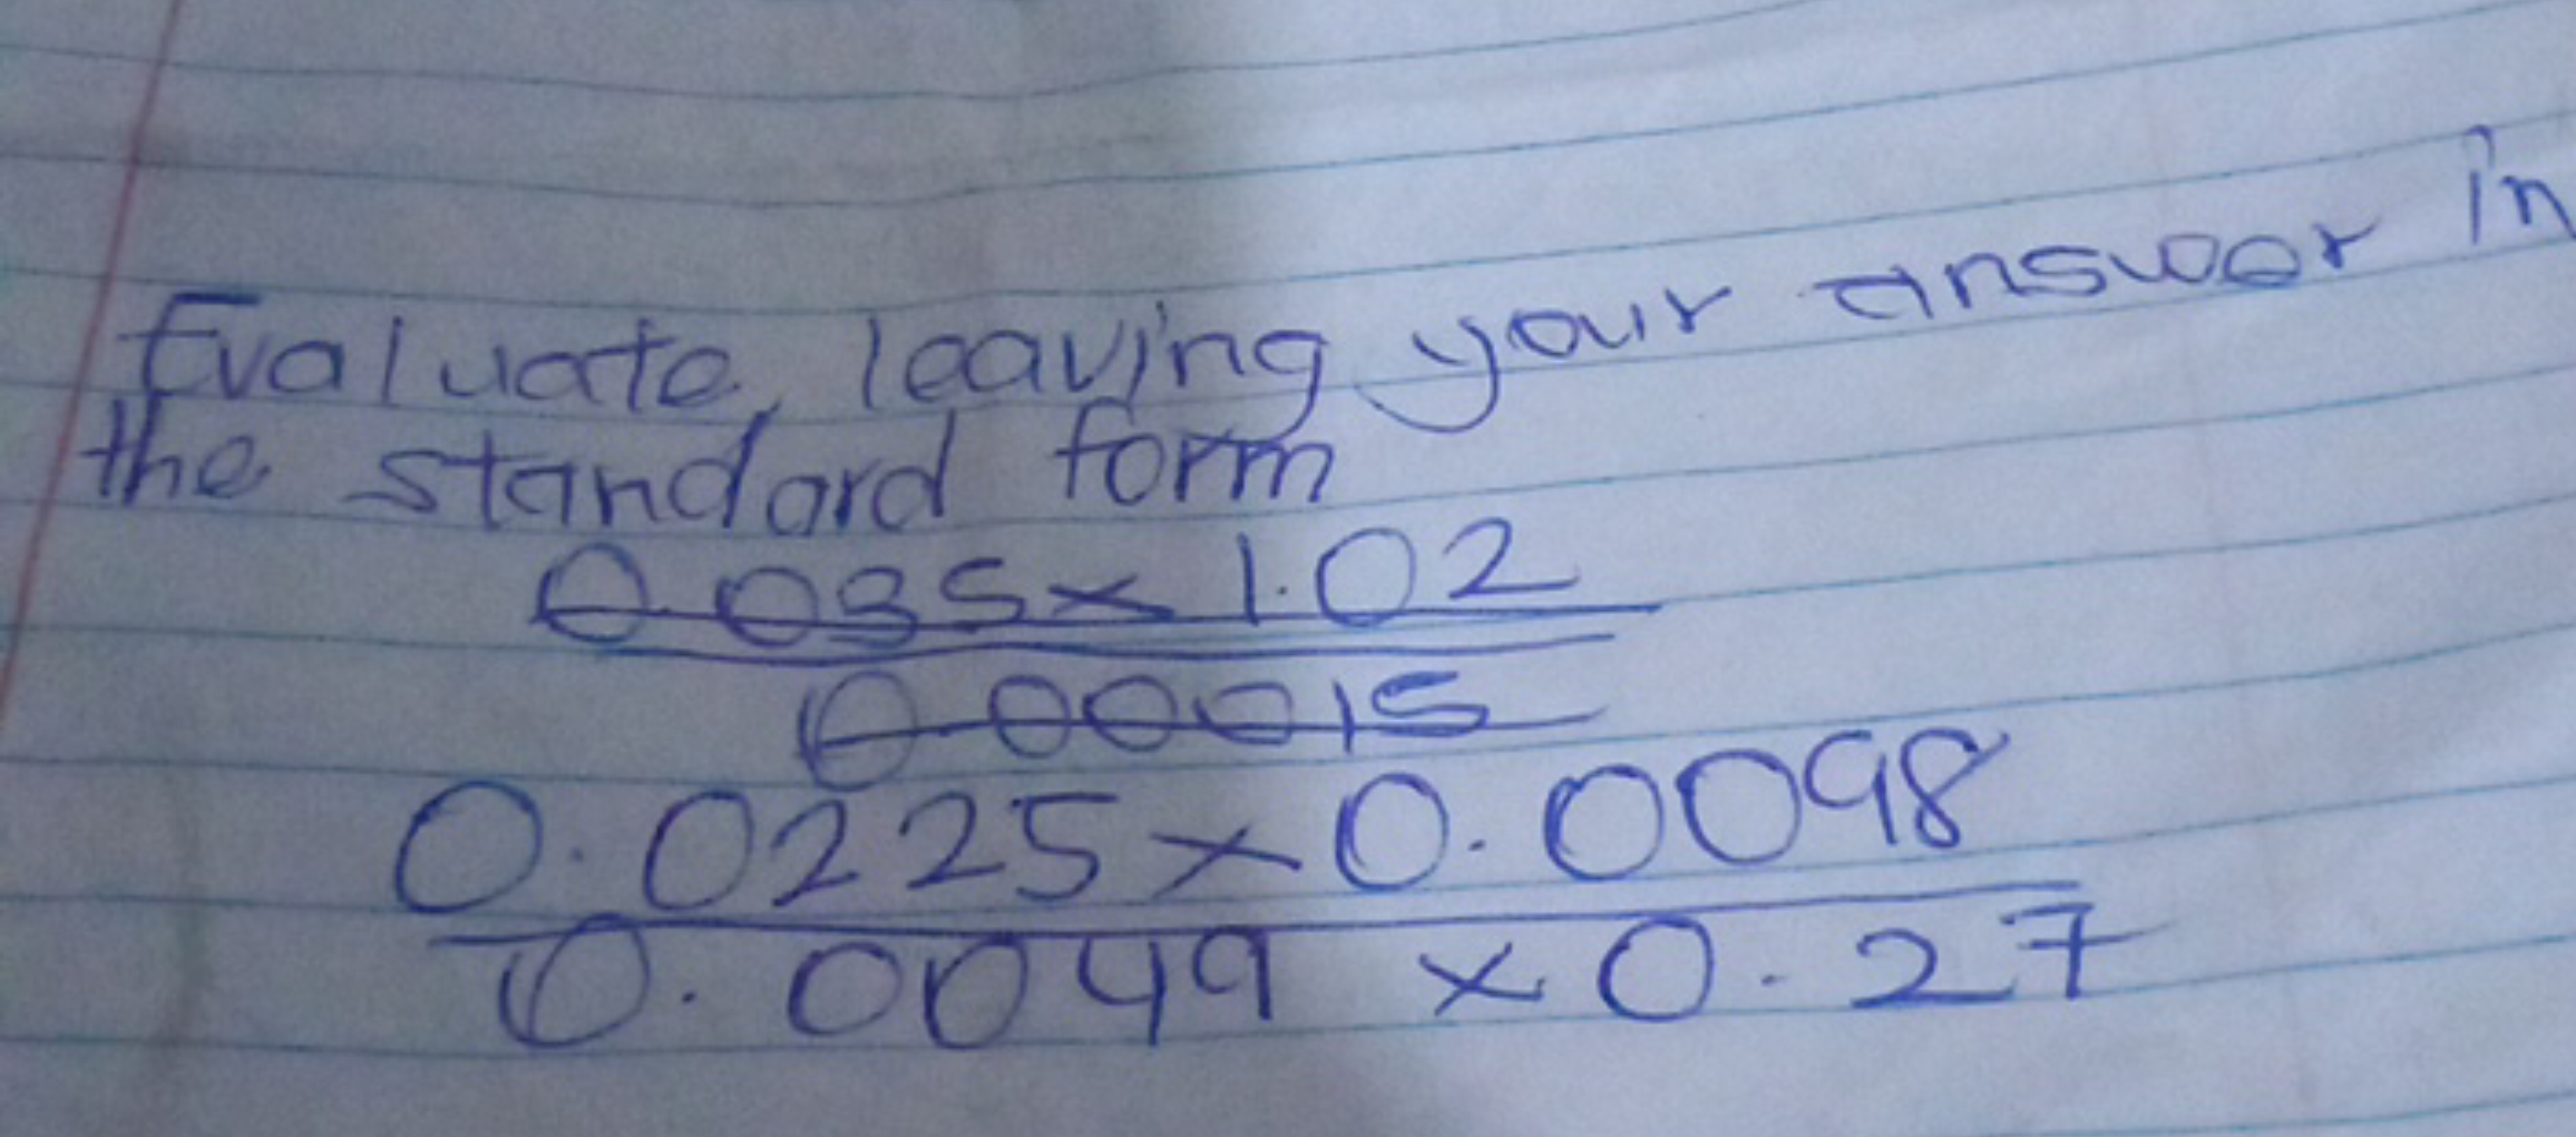 Evaluate, leaving your answer in
the standard form
0.035 × 1.02
0.00015
0.0225 × 0.0098
0.0049 × 0.27